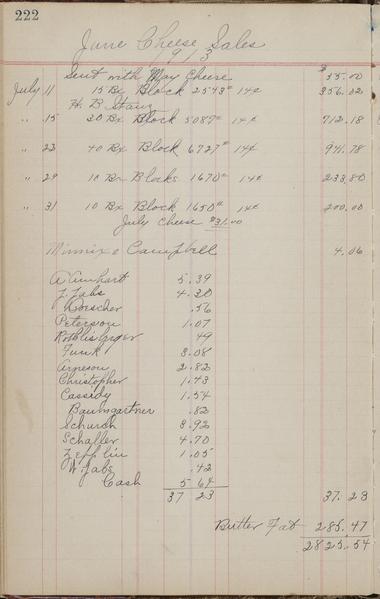 222
June Cheese Sales
1913
Sent with May Cheese $ 35.00
July 11 15 Bx Block 2543# 14¢ 356.02
H. B. Stanz
" 15 30 Bx Block 5087# 14¢ 712.18
" 22 40 Bx Block 6727# 14¢ 941.78
" 29 10 Bx Blocks 1670# 14¢ 233.80
" 31 10 Bx Block 1650# 14¢ 200.00
July Cheese $31.00
Minnix & Campbell 4.06
A. 5.39
J. Jabs 4.20
.56
Peterson 1.07
Rothlisberger 49
Funk 3.08
Arneson 2.82
Christopher 1.43
Cassidy 1.54
Baumgartner .82
Schurch 3.92
Schaller 4.70
Zepplin 1.05
W. Jabs .42
Cash 5 64
37 23 37.23
Butter Fat 285.47
2825.54